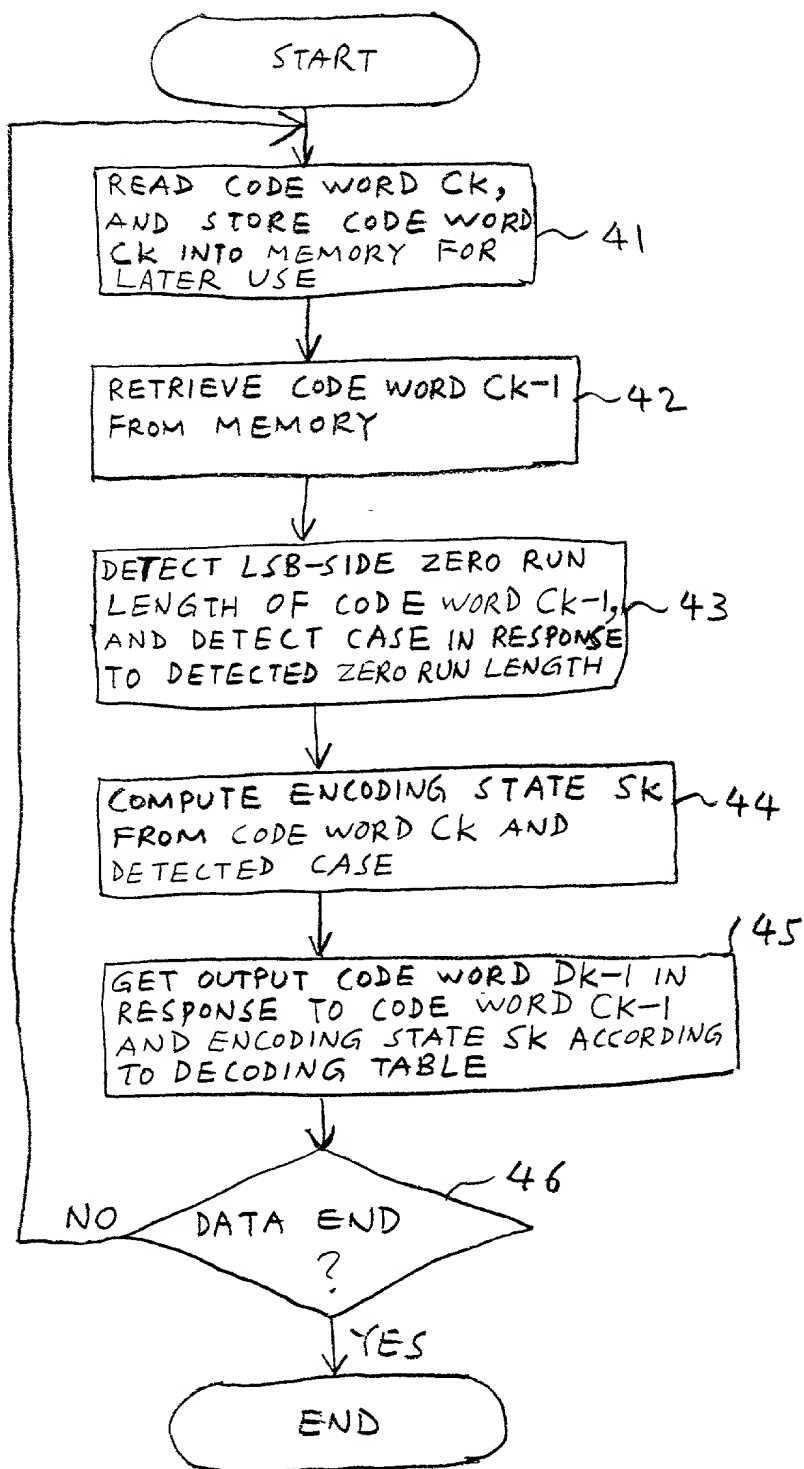 START
READ CODE WORD CK,
AND STORE CODE WORD
CK INTO MEMORY FOR
LATER USE
41
RETRIEVE CODE WORD CK-1
FROM MEMORY
42
DETECT LSB-SIDE ZERO RUN
LENGTH OF CODE WORD CK-1,
AND DETECT CASE IN RESPONSE
TO DETECTED ZERO RUN LENGTH
43
COMPUTE ENCODING STATE SK
FROM CODE WORD CK AND
DETECTED CASE
44
45
GET OUTPUT CODE WORD DK-1 IN
RESPONSE TO CODE WORD CK-1
AND ENCODING STATE SK ACCORDING
TO DECODING TABLE
46
DATA END
?
NO
YES
END